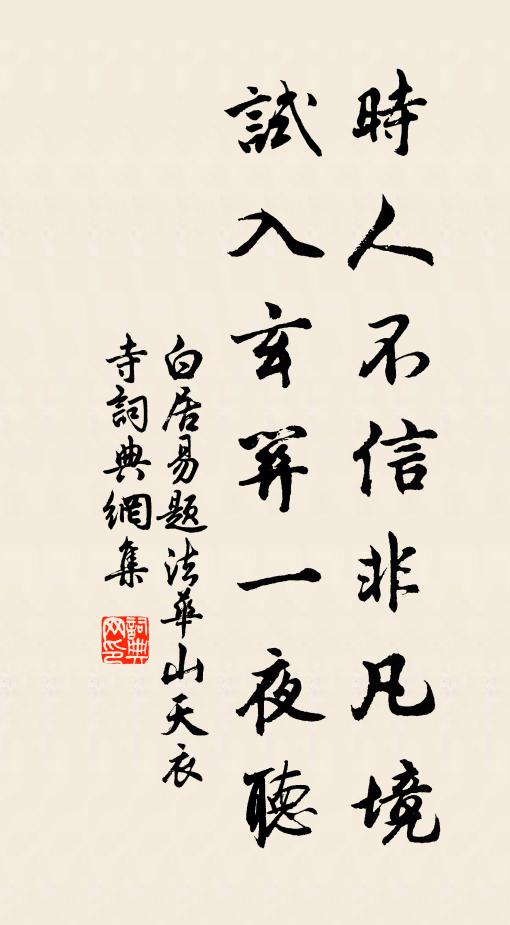 時人不信非凡境
試入玄關一夜聽
白居易題法華山天衣
寺詞典網集
詞典
网印